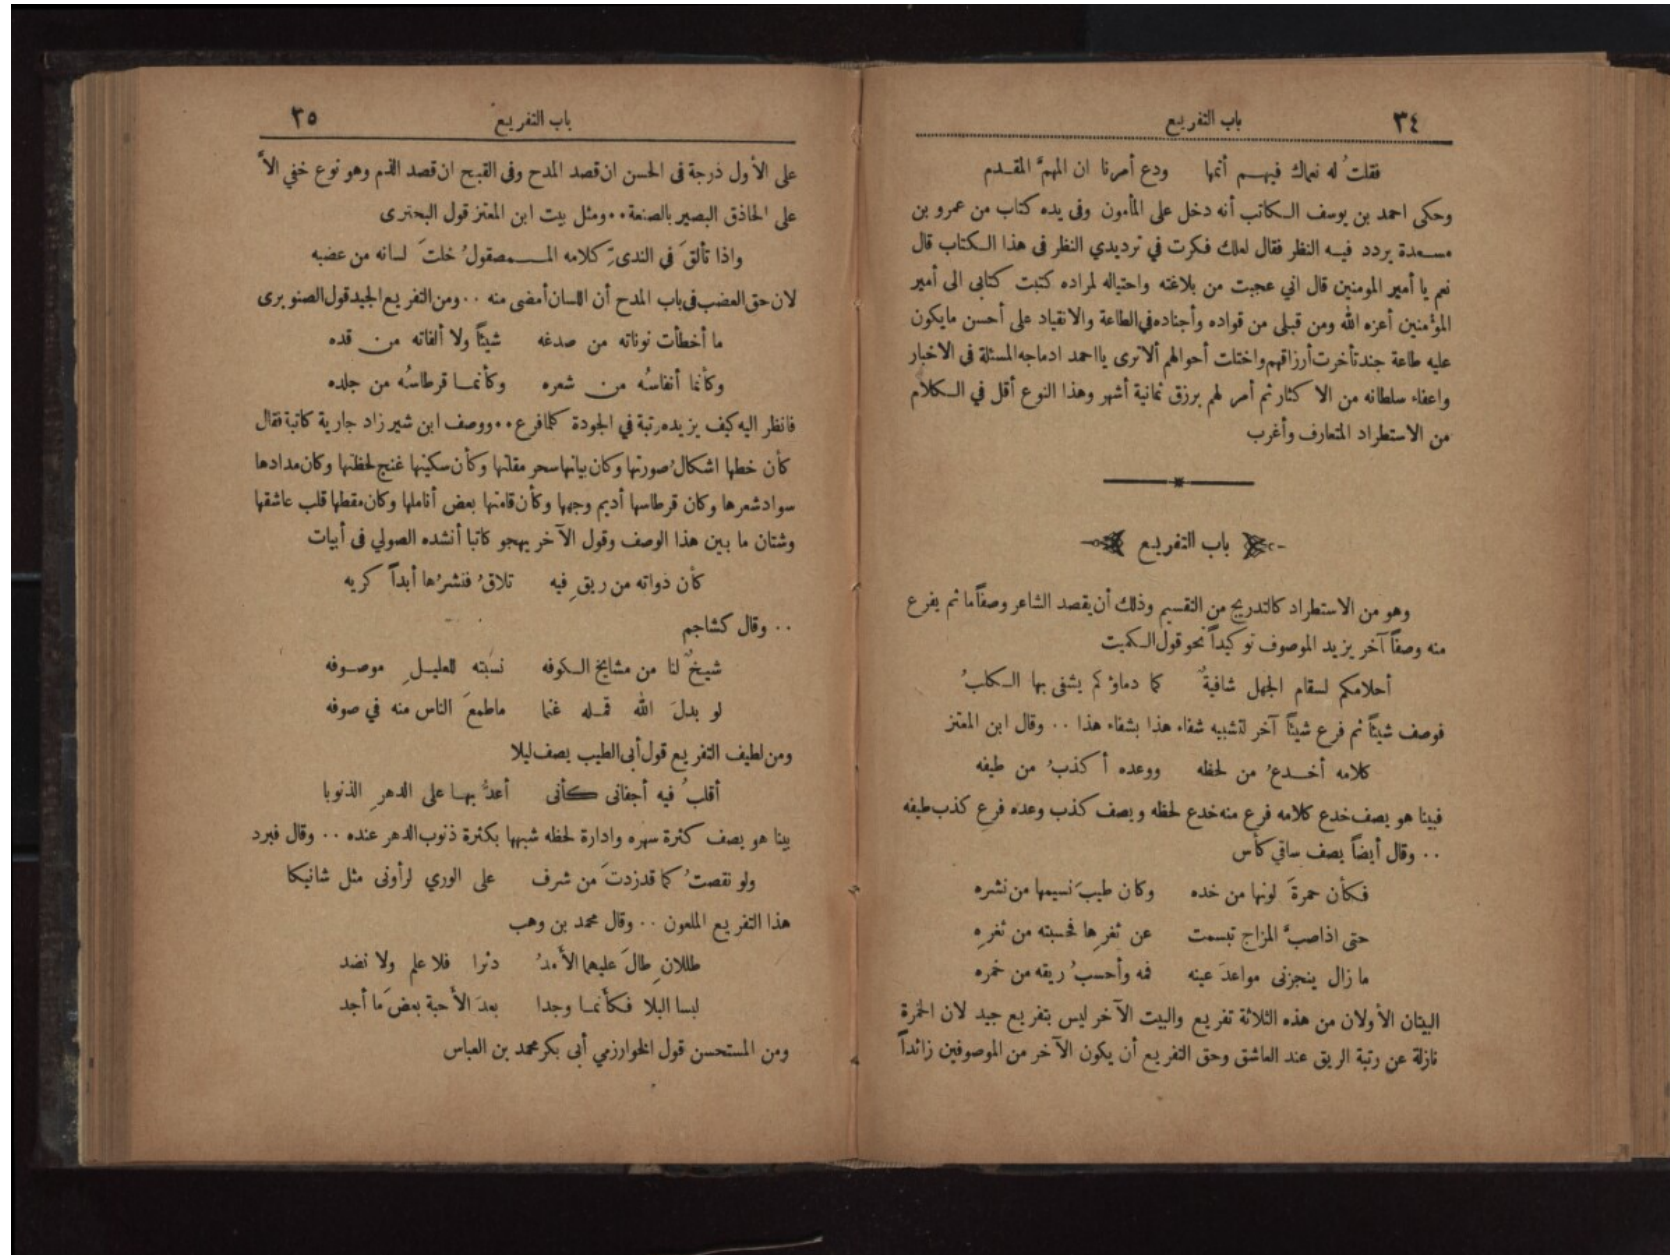 ٣٤
باب التفريع
فقلتُ له نعماك فيهم أتمها ودع أمرنا ان المهمَّ المقدم
وحكى احمد بن يوسف الكاتب أنه دخل على المأمون وفى يده كتاب من عمرو بن
مسعدة يردد فيه النظر فقال لعلك فكرت في ترديدي النظر فى هذا الكتاب قال
نعم يا أمير المومنين قال اني عجبت من بلاغته واحتياله لمراده كتبت كتابى الى أمير
المؤمنين أعزه الله ومن قبلى من قواده وأجناده في الطاعة والانقياد على أحسن مايكون
عليه طاعة جند تأخرت أرزاقهم واختلت أحوالهم ألاترى يااحمد ادماجه المسئلة فى الاخبار
واعفاء سلطانه من الاكثار ثم أمر لهم برزق ثمانية أشهر وهذا النوع أقل في الكلام
من الاستطراد المتعارف وأغرب
باب التفريع
وهو من الاستطراد كالتدريج من التقسيم وذلك أن يقصد الشاعر وصفاً ما ثم يفرع
منه وصفاً آخر يزيد الموصوف توكيداً نحو قول الكميت
أحلامكم لسقام الجهل شافيةٌ كما دماؤكم يشفى بها الكلبُ
فوصف شيئاً ثم فرع شيئاً آخر لتشبيه شفاء هذا بشفاء هذا .. وقال ابن المعتز
كلامه أخدعُ من لحظه ووعده أكذبُ من طيفه
فبينا هو يصف خدع كلامه فرع منه خدع لحظه ويصف كذب وعده فرع كذب طيفه
.. وقال أيضاً يصف ساقي كأس
فكأن حمرةَ لونها من خده وكان طيبَ نسيمها من نشره
حتى اذاصبَّ المزاج تبسمت عن ثغرِها فحسبته من ثغرِه
ما زال ينجزنى مواعدَ عينه فمه وأحسبُ ريقه من خمره
البيتان الأولان من هذه الثلاثة تفريع والبيت الآخر ليس بتفريع جيد لان الخمرة
نازلة عن رتبة الريق عند العاشق وحق التفريع أن يكون الآخر من الموصوفين زائداً
باب التفريع
٣٥
على الأول درجة فى الحسن ان قصد المدح وفى القبح ان قصد الذم وهو نوع خفي الاَّ
على الحاذق البصير بالصنعة .. ومثل بيت ابن المعتز قول البحترى
واذا تألقَ فى الندىِّ كلامه المـصقولُ خلتَ لسانه من عضبه
لان حق العضب فى باب المدح أن اللسان أمضى منه .. ومن التفريع الجيد قول الصنوبرى
ما أخطأت نوناته من صدغه شيئاً ولا ألفاته من قده
وكأنما أنفاسُه من شعره وكأنما قرطاسُه من جلده
فانظر اليه كيف يزيده رتبة في الجودة كلما فرع .. ووصف ابن شير زاد جارية كاتبة فقال
كأن خطها اشكال صورتها وكان بيانها سحر مقلتها وكأن سكينها غنج لحظتها وكان مدادها
سواد شعرها وكان قرطاسها أديم وجهها وكأن قامتها بعض أناملها وكان مقطها قلب عاشقها
وشتان ما بين هذا الوصف وقول الآخر يهجو كاتبا أنشده الصولي فى أبيات
كأن دواته من ريق فيه تلاقُ فنشرُها أبداً كريه
.. وقال كشاجم
شيخٌ لنا من مشايخ الكوفه نسبته للعليلِ موصوفه
لو بدلَ الله قمله غنما ماطمعَ الناس منه في صوفه
ومن لطيف التفريع قول أبى الطيب يصف ليلا
أقلبُ فيه أجفانى كأنى أعدُّ بها على الدهرِ الذنوبا
بينا هو يصف كثرة سهره وادارة لحظه شبهها بكثرة ذنوب الدهر عنده .. وقال فبرد
ولو نقصتُ كما قدزدتَ من شرف على الوري لرأونى مثل شانيكا
هذا التفريع الملعون .. وقال محمد بن وهب
طللانِ طالَ عليهما الأمدُ دثرا فلا علم ولا نضد
لبسا البلا فكأنما وجدا بعدَ الأحبة بعضَ ما أجد
ومن المستحسن قول الخوارزمي أبى بكر محمد بن العباس